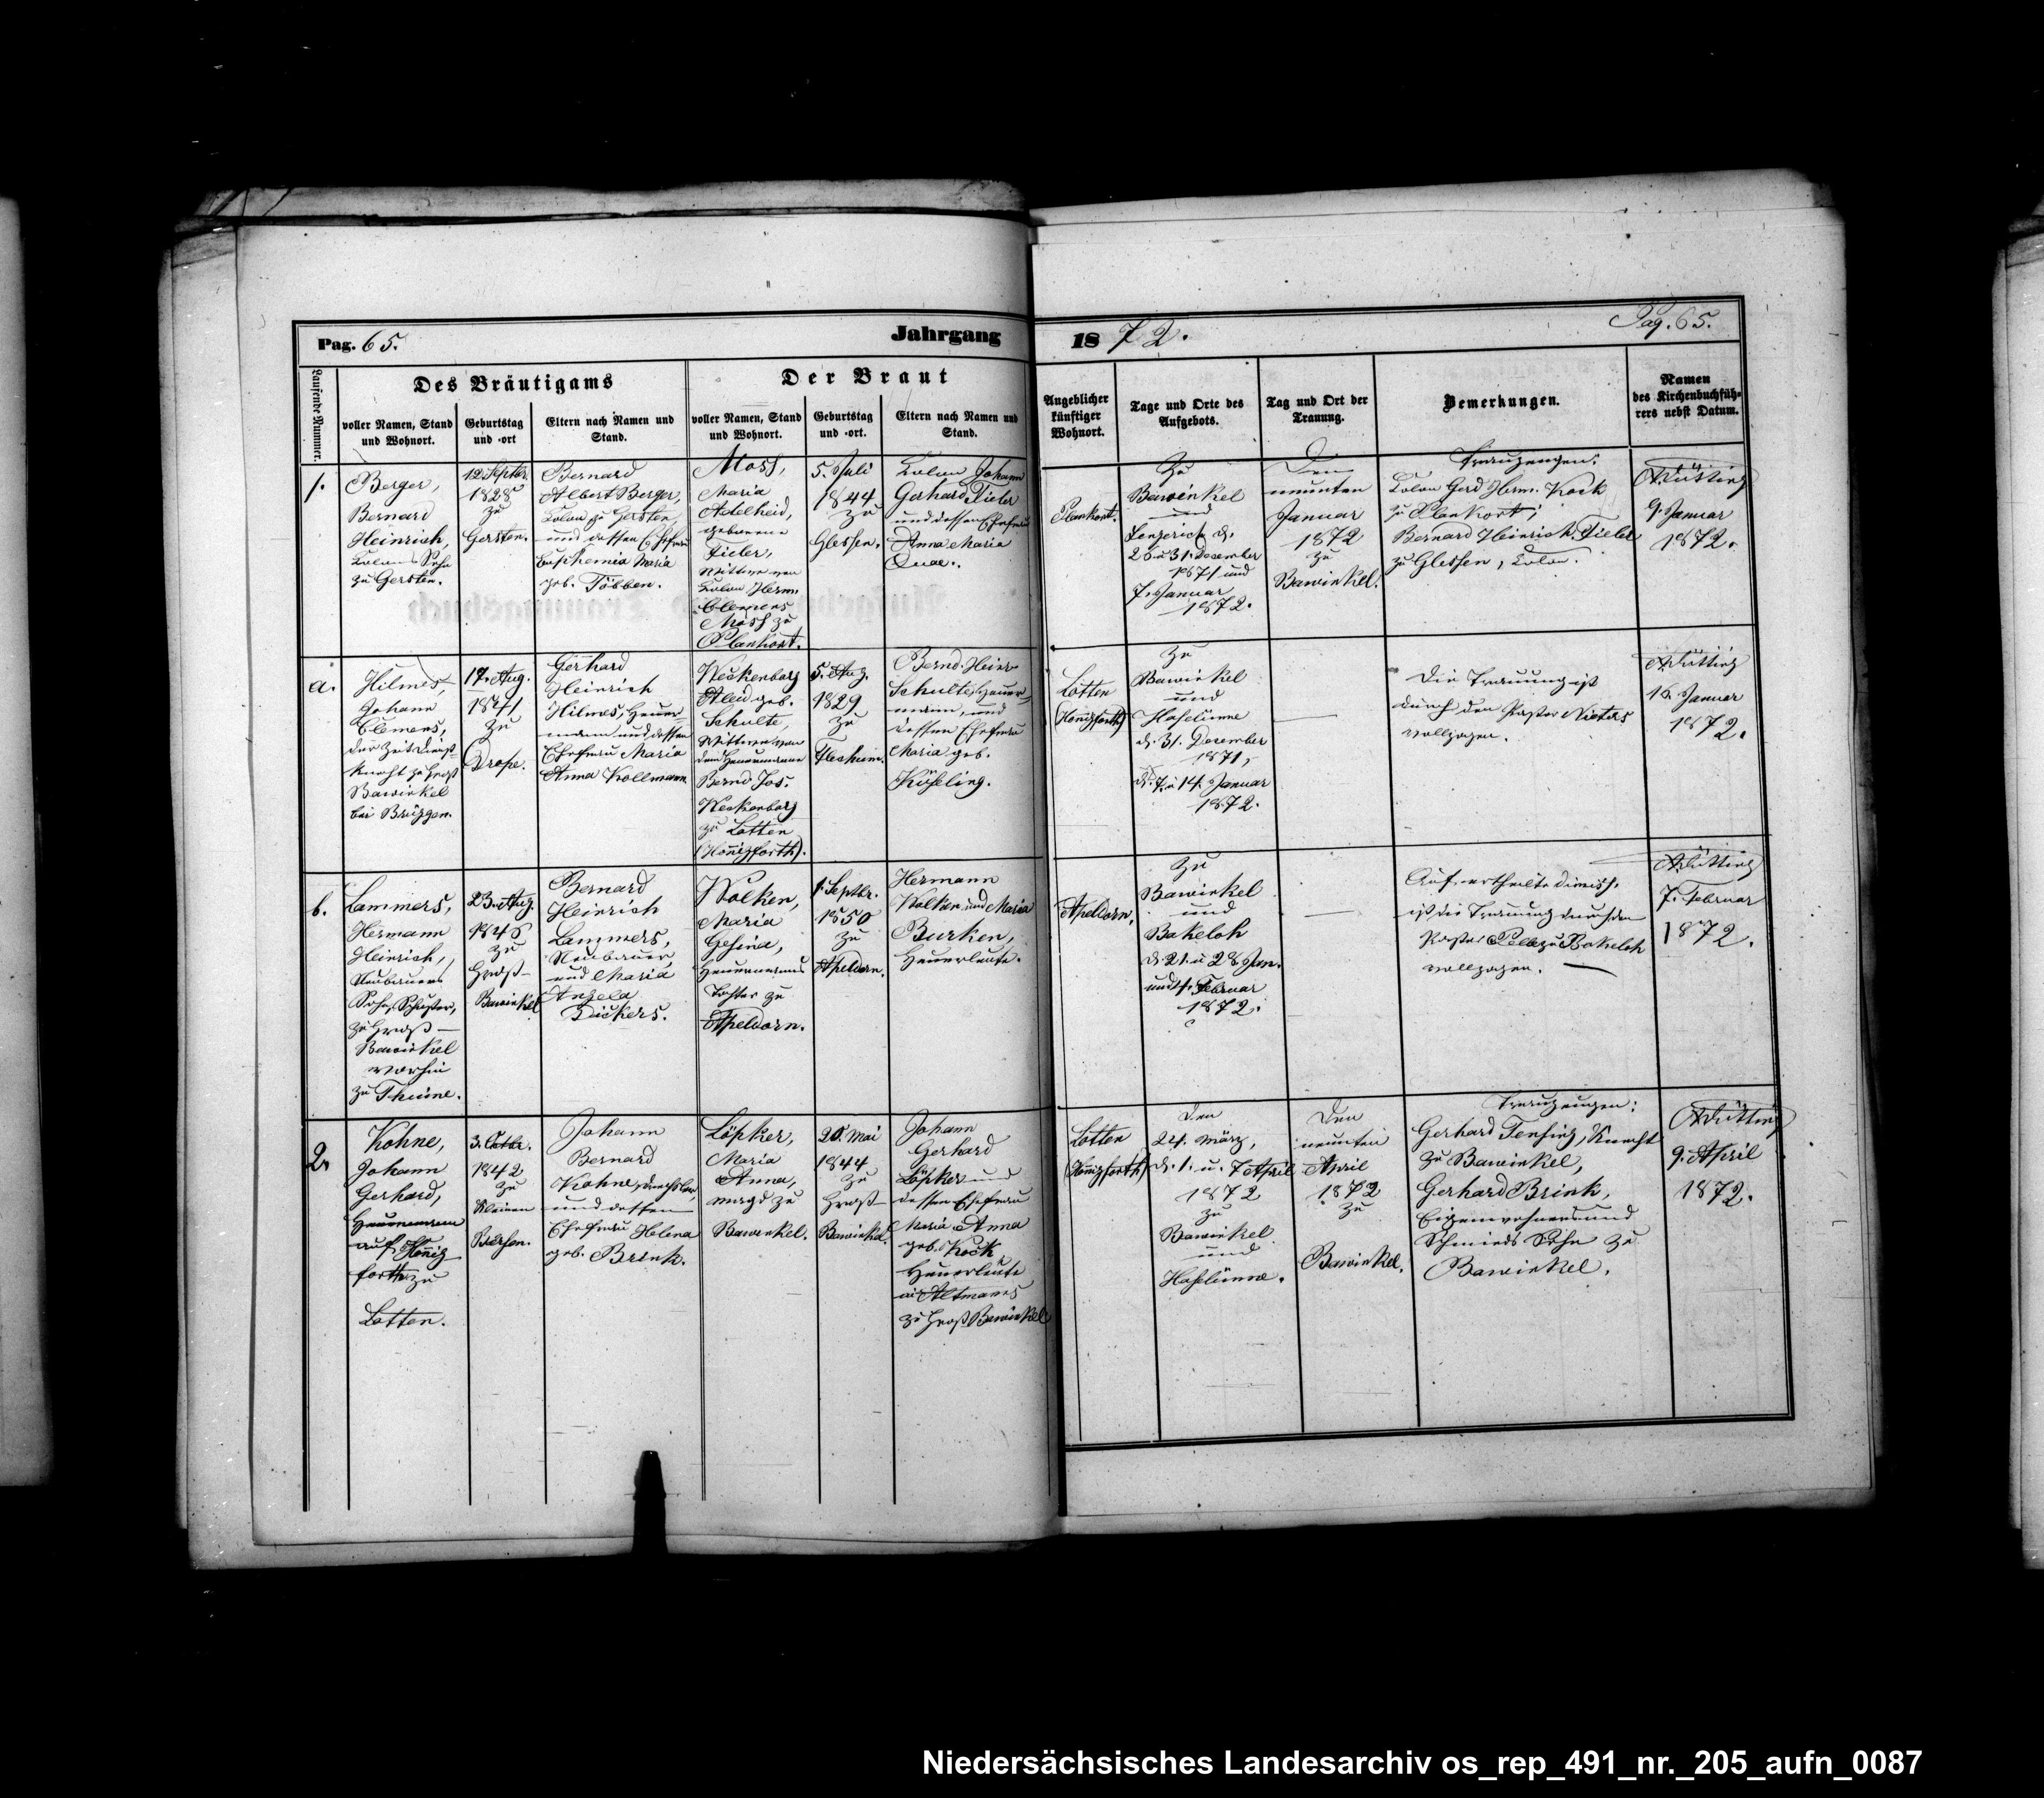 Pag. 65.
Jahrgang
1872.
Pag. 65.
Laufende Nummer.
Des Bräutigams
voller Namen, Stand
und Wohnort.
Geburtstag
und -ort
Eltern nach Namen und
Stand.
Der Braut
voller Namen, Stand
und Wohnort.
Geburtstag
und -ort.
Eltern nach Namen und
Stand.
Angeblicher
künftiger
Wohnort.
Tage und Orte des
Aufgebots.
Tag und Ort der
Trauung.
Bemerkungen.
Namen
des Kirchenbuchfüh-
rers nebst Datum.
1.
Berger,
Bernard
Heinrich,
Colons Sohn
zu Gersten.
12. Septbr.
1828
zu
Gersten.
Bernard
Albert Berger,
Colon zu Gersten
und dessen Ehefrau
Euphemia Maria
geb. Többen.
Moss,
Maria
Adelheid,
geborene
Fieler,
Wittwe von
Colon Herm.
Clemens
Moss zu
Plankort.
5. Juli
1844
zu
Glessen.
Colon Johann
Gerhard Fieler
und dessen Ehefrau
Anna Maria
Plankort.
Zu
Bawinkel
und
Lengerich d.
26 u 31. December
1871 und
7. Januar
1872.
Den
neunten
Januar
1872
zu
Bawinkel.
Trauzeugen:
Colon Gerd Herm. Kock
zu Plankort;
Bernard Heinrich Fieler
zu Glessen, Colon.
9. Januar
1872.
a.
Hilmes,
Johann
Clemens,
der Zeit Dienst-
knecht zu Groß
Bawinkel
bei Brüggen.
17. Aug.
1841
zu
Drope.
Gerhard
Heinrich
Hilmes, Heuer-
mann und dessen
Ehefrau Maria
Anna Kollmann
Weckenborg
Aleid geb.
Schulte,
Wittwe von
dem Heuermann
Bernd Jos.
Weckenborg
zu Lotten
(Honnigforth).
5. Aug.
1829
zu
Flechum.
Bernd. Heinr.
Schulte, Heuer-
mann, und
dessen Ehefrau
Maria geb.
Lotten
(Honnigforth)
Zu
Bawinkel
und
Haselünne
d. 31. December
1871,
d. 7. u 14. Januar
1872.
Die Trauung ist
durch den Pastor Nieters
vollzogen.
16. Januar
1872.
b.
Lammers,
Hermann
Heinrich,
Neubauers
Sohn, Schuster,
zu Groß-
Bawinkel
vorhin
zu Thuine.
23. Aug.
zu
Groß-
Bawinkel
Bernard
Heinrich
Lammers,
Neubauer,
und Maria
Angela
Dückers.
Wolken,
Maria
Gesina,
Heuermanns
Tochter zu
Apeldorn.
1. Septbr.
1850
zu
Apeldorn.
Hermann
Wolken und Maria
Burken,
Heuerleute.
Apeldorn.
Zu
Bawinkel
und
Bokeloh
d. 21. u 28 Jan.
und 4. Februar
1872.
Auf ertheilte Dimiss.
ist die Trauung durch den
Pastor zu Bokeloh
vollzogen.
7. Februar
1872.
2.
Kohne,
Johann
Gerhard,
Heuermann
auf Honnig
forth zu
Lotten.
3. Octbr.
1842
zu
Kleinen
Bersen.
Johann
Bernard
Kohne, Drechsler,
und dessen
Ehefrau Helena
geb. Brink.
Löpker,
Maria
Anna,
Magd zu
Bawinkel.
20. Mai
1844
zu
Groß
Bawinkel.
Johann
Gerhard
Löpker und
dessen Ehefrau
Maria Anna
geb. Kock
Heuerleute
in Altmanns
zu Groß Bawinkel
Lotten
(Honnigforth)
den
24. März,
d. 1. u. 7 April
1872
zu
Bawinkel
und
Haselünne.
Den
neunten
April
1872
zu
Bawinkel.
Trauzeugen:
Gerhard Tensing, Knecht
zu Bawinkel,
Gerhard Brink,
Eigenwohners und
Schmieds Sohn zu
Bawinkel.
9. April
1872.
Niedersächsisches Landesarchiv os_rep_491_nr._205_aufn_0087